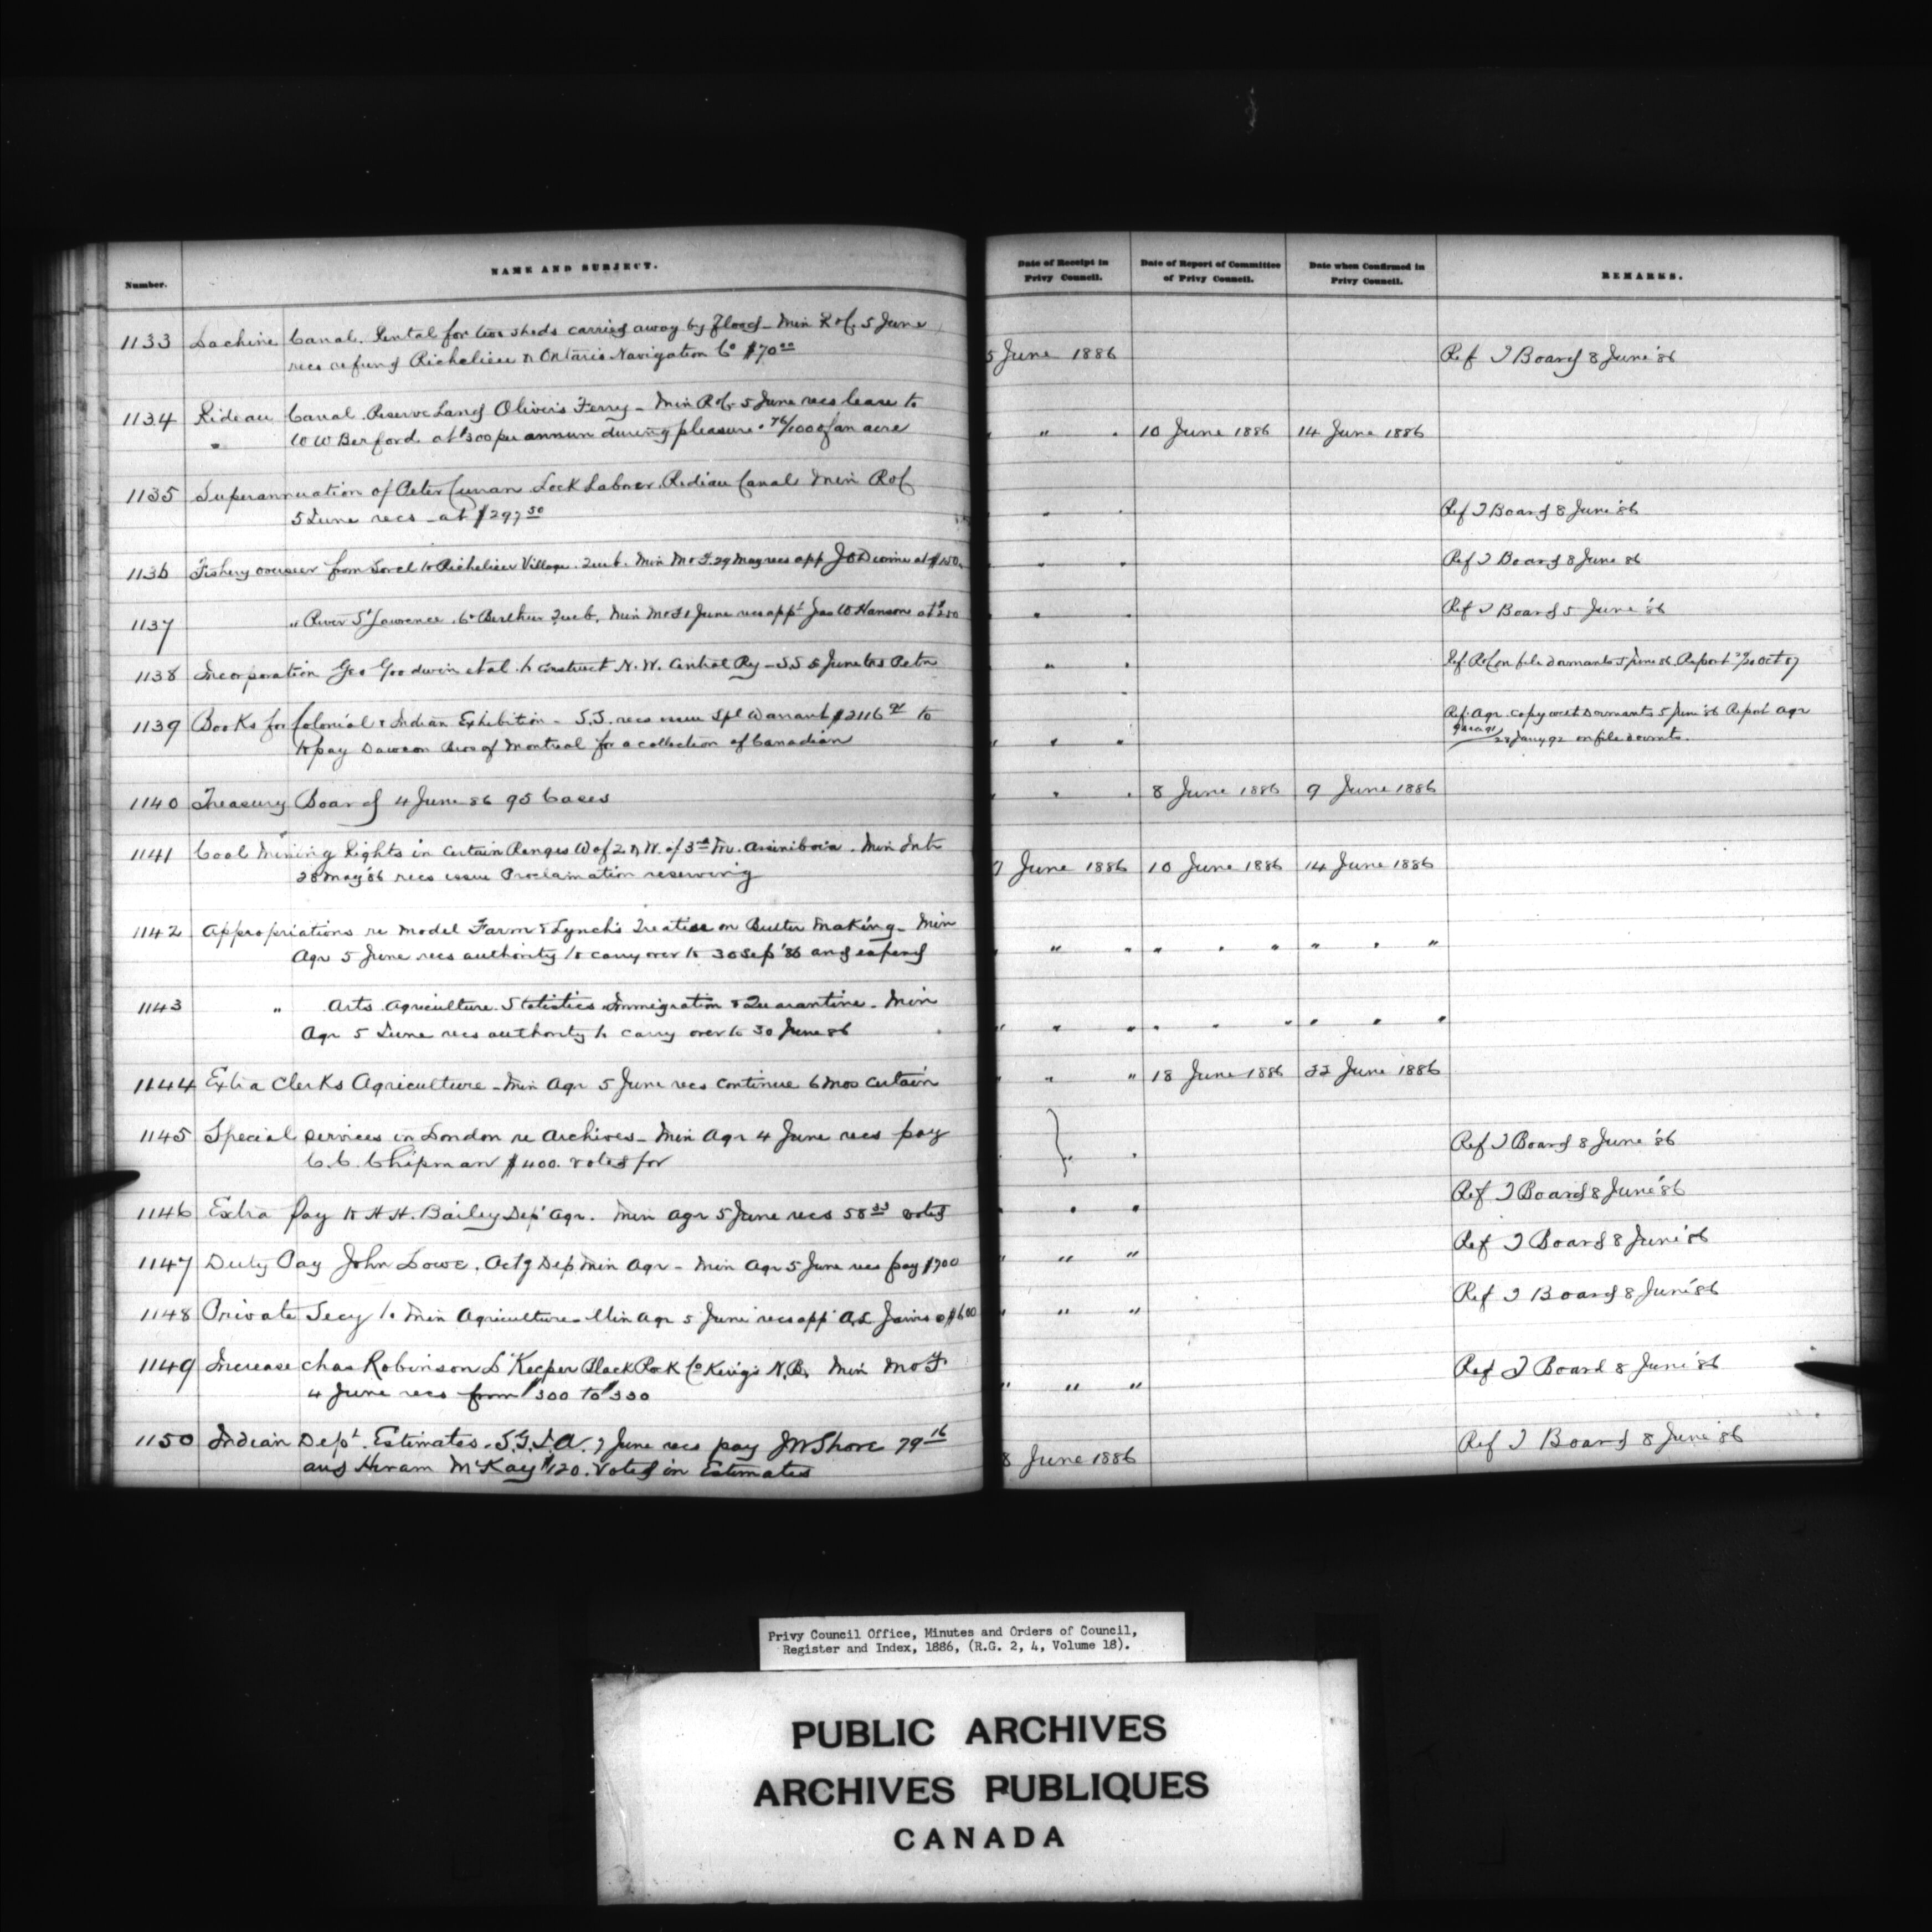 Number.
NAME AND SUBJECT.
Date of Receipt in Privy Council.
Date of Report of Committee of Privy Council.
Date when Confirmed in Privy Council.
REMARKS.
1133 Lachine Canal. Rental for two sheds carried away by flood - Min R of C 5 June
recs refund Richelieu & Ontario Navigation Co $70.00
5 June 1886
Ref T Board 8 June '86
1134 Rideau Canal. Reserve Land Oliver's Ferry - Min R of C 5 June recs lease to
" W W Berford at $3.00 per annum during pleasure . 76/1000 of an acre
" " " 10 June 1886 14 June 1886
1135 Superannuation of Peter Curran Lock Laborer Rideau Canal Min R of C
5 June recs - at $297.50
" " "
Ref T Board 8 June '86
1136 Fishery overseer from Sorel to Richelieu Village. Queb. Min M & F. 29 May recs app J O Devine at $150.
" " "
Ref T Board 8 June 86
1137 " River St Lawrence. Co Berthier Queb. Min M & F 1 June recs appt Jas W Hanson at $250
" " "
Ref T Board 5 June '86
1138 Incorporation Geo Goodwin et al to construct N. W. Central Ry - S S 5 June Petn
" " "
Ref. R of C on file Dormants 5 June 86 Report Oct 87
1139 Books for Colonial & Indian Exhibition - S.S. recs issue Spl Warrant $2116 to
to pay Dawson Bros of Montreal for a collection of Canadian
" " "
Ref. Agr. copy Dormants 5 June '86 Report Agr
28 Jany 92 on file
1140 Treasury Board 4 June 86 95 Cases
" " " 8 June 1886 9 June 1886
1141 Coal Mining Rights in certain Ranges W of 2 & W. of 3rd M. Assiniboia. Min Int
28 May '86 recs issue Proclamation reserving
7 June 1886 10 June 1886 14 June 1886
1142 Appropriations re Model Farm & Lynch's Treatise on Butter Making - Min
Agr 5 June recs authority to carry over to 30 Sep '86 and expend
" " " " " " " " "
1143 " Arts Agriculture. Statistics. Immigration & Quarantine - Min
Agr 5 June recs authority to carry over to 30 June 86
" " " " " " " " "
1144 Extra Clerks Agriculture - Min Agr 5 June recs continue 6 mos certain
" " " 18 June 1886 22 June 1886
1145 Special services in London re Archives - Min Agr 4 June recs pay
C. C. Chipman $400. voted for
" " "
Ref T Board 8 June '86
1146 Extra pay to H H. Bailey Dept Agr. Min Agr 5 June recs 58.33 voted
" " "
Ref T Board 8 June '86
1147 Duty Pay John Lowe. Actg Dep Min Agr - Min Agr 5 June recs pay $700
" " "
Ref T Board 8 June '86
1148 Private Secy to Min Agriculture - Min Agr 5 June recs app A. L. Jarvis @ $600
" " "
Ref T Board 8 June '86
1149 Increase Chas Robinson Lt Keeper Black Rock Co Kings N.B. Min M & F
4 June recs from $300 to $330
" " "
Ref T Board 8 June '86
1150 Indian Dept. Estimates. S.G.I.A. 7 June recs pay J W Shore 79.16
and Hiram McKay $120. Voted in Estimates
8 June 1886
Ref T Board 8 June 86
Privy Council Office, Minutes and Orders of Council,
Register and Index, 1886, (R.G. 2, 4, Volume 18).
PUBLIC ARCHIVES
ARCHIVES PUBLIQUES
CANADA